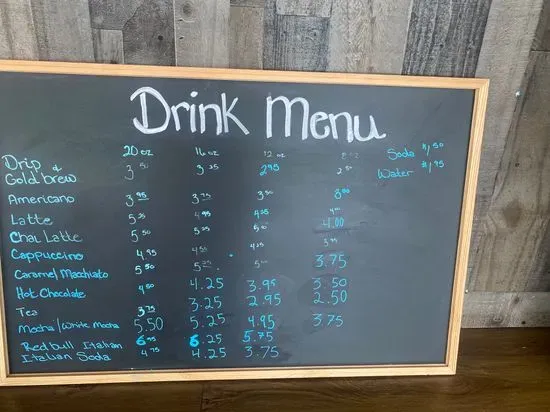 Drink Menu
20 oz 16 oz 12 oz 8 oz
Soda $1.50
Water $1.95
Drip &
Cold brew 3.50 3.25 2.95 2.50
Americano 3.95 3.75 3.50 3.00
Latte 5.25 4.95 4.25
Chai Latte 5.50 5.25 5.00 4.00
Cappuccino 4.95 4.50 4.25
Caramel Macchiato 5.50 5.25 5.00 3.75
Hot Chocolate 4.50 4.25 3.95 3.50
Tea 3.75 3.25 2.95 2.50
Mocha/White Mocha 5.50 5.25 4.95 3.75
Redbull Italian 6.95 6.25 5.75
Italian Soda 4.75 4.25 3.75